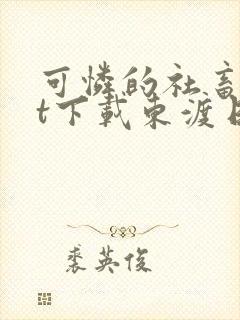 可憐的社畜
t下載東渡日
裘英俊